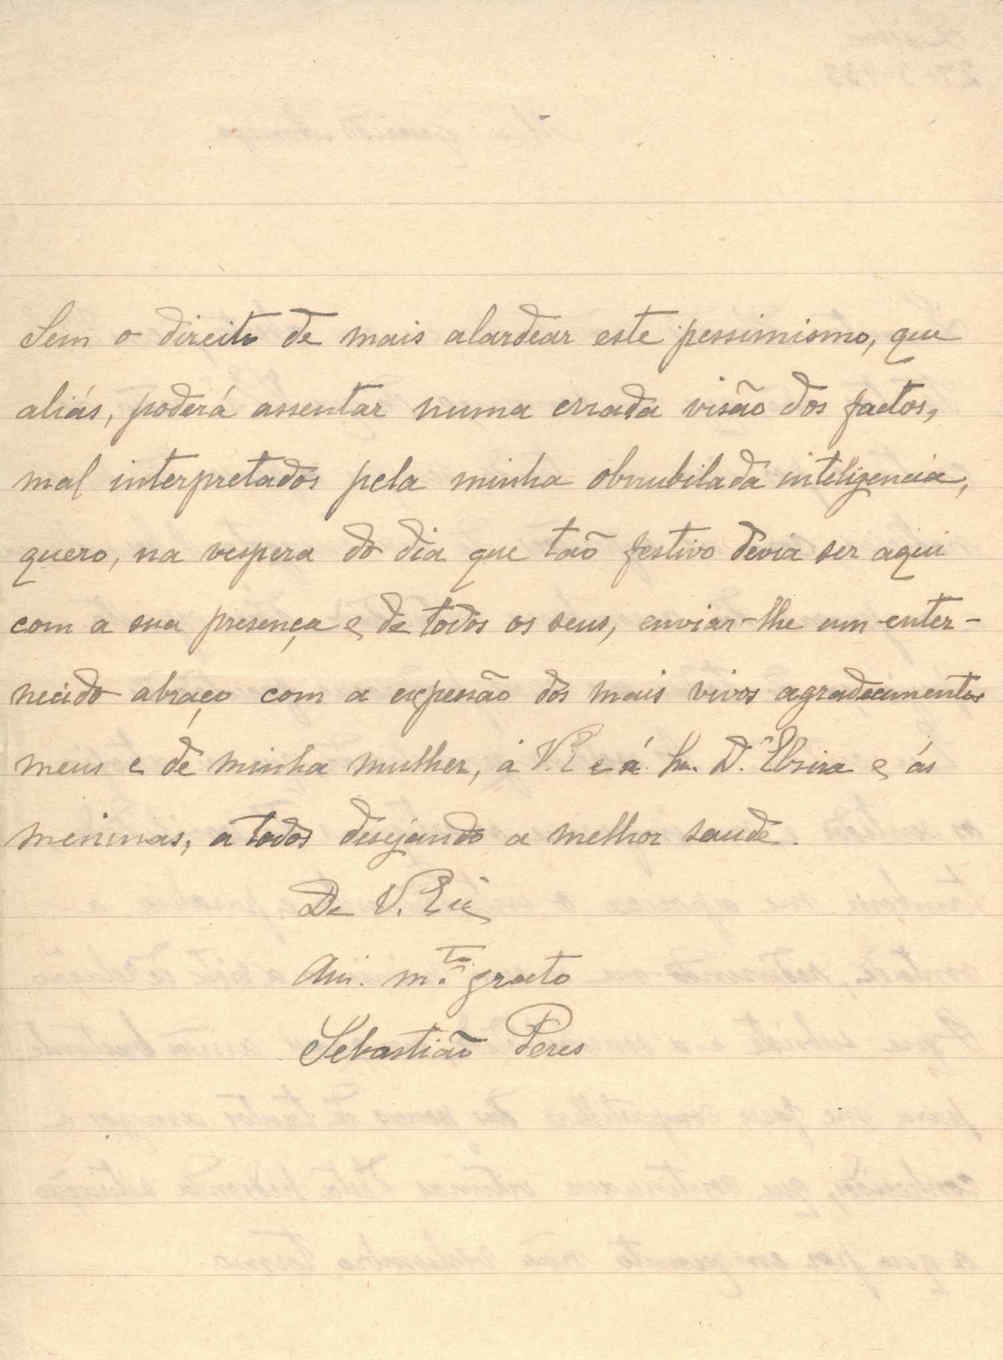 Sem o direito de mais alardear este pessimismo, que
aliás, poderá assentar numa errada visão dos factos,
mal interpretados pela minha obnubilada inteligencia,
quero, na vespera do dia que taõ festivo devia ser aqui
com a sua presença e de todos os seus, enviar-lhe um enter-
necido abraço com a expensão dos mais vivos agradecimentos
meus e de minha mulher, a V. E e á Sra. D. Elzira e ás
meninas, a todos desejando a melhor saude.
De V. Eia
Am. m.to grato
Sebastiaõ Peres